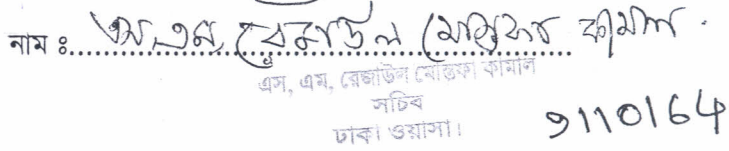 নাম ঃ এস, এম, রেজাউল মোস্তফা কামাল
এস, এম, রেজাউল মোস্তফা কামাল
সচিব
ঢাকা ওয়াসা।
9110164